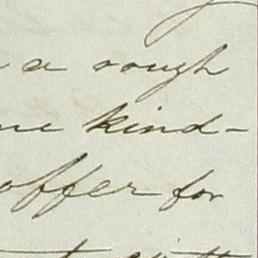 a rough
kind-
offer for